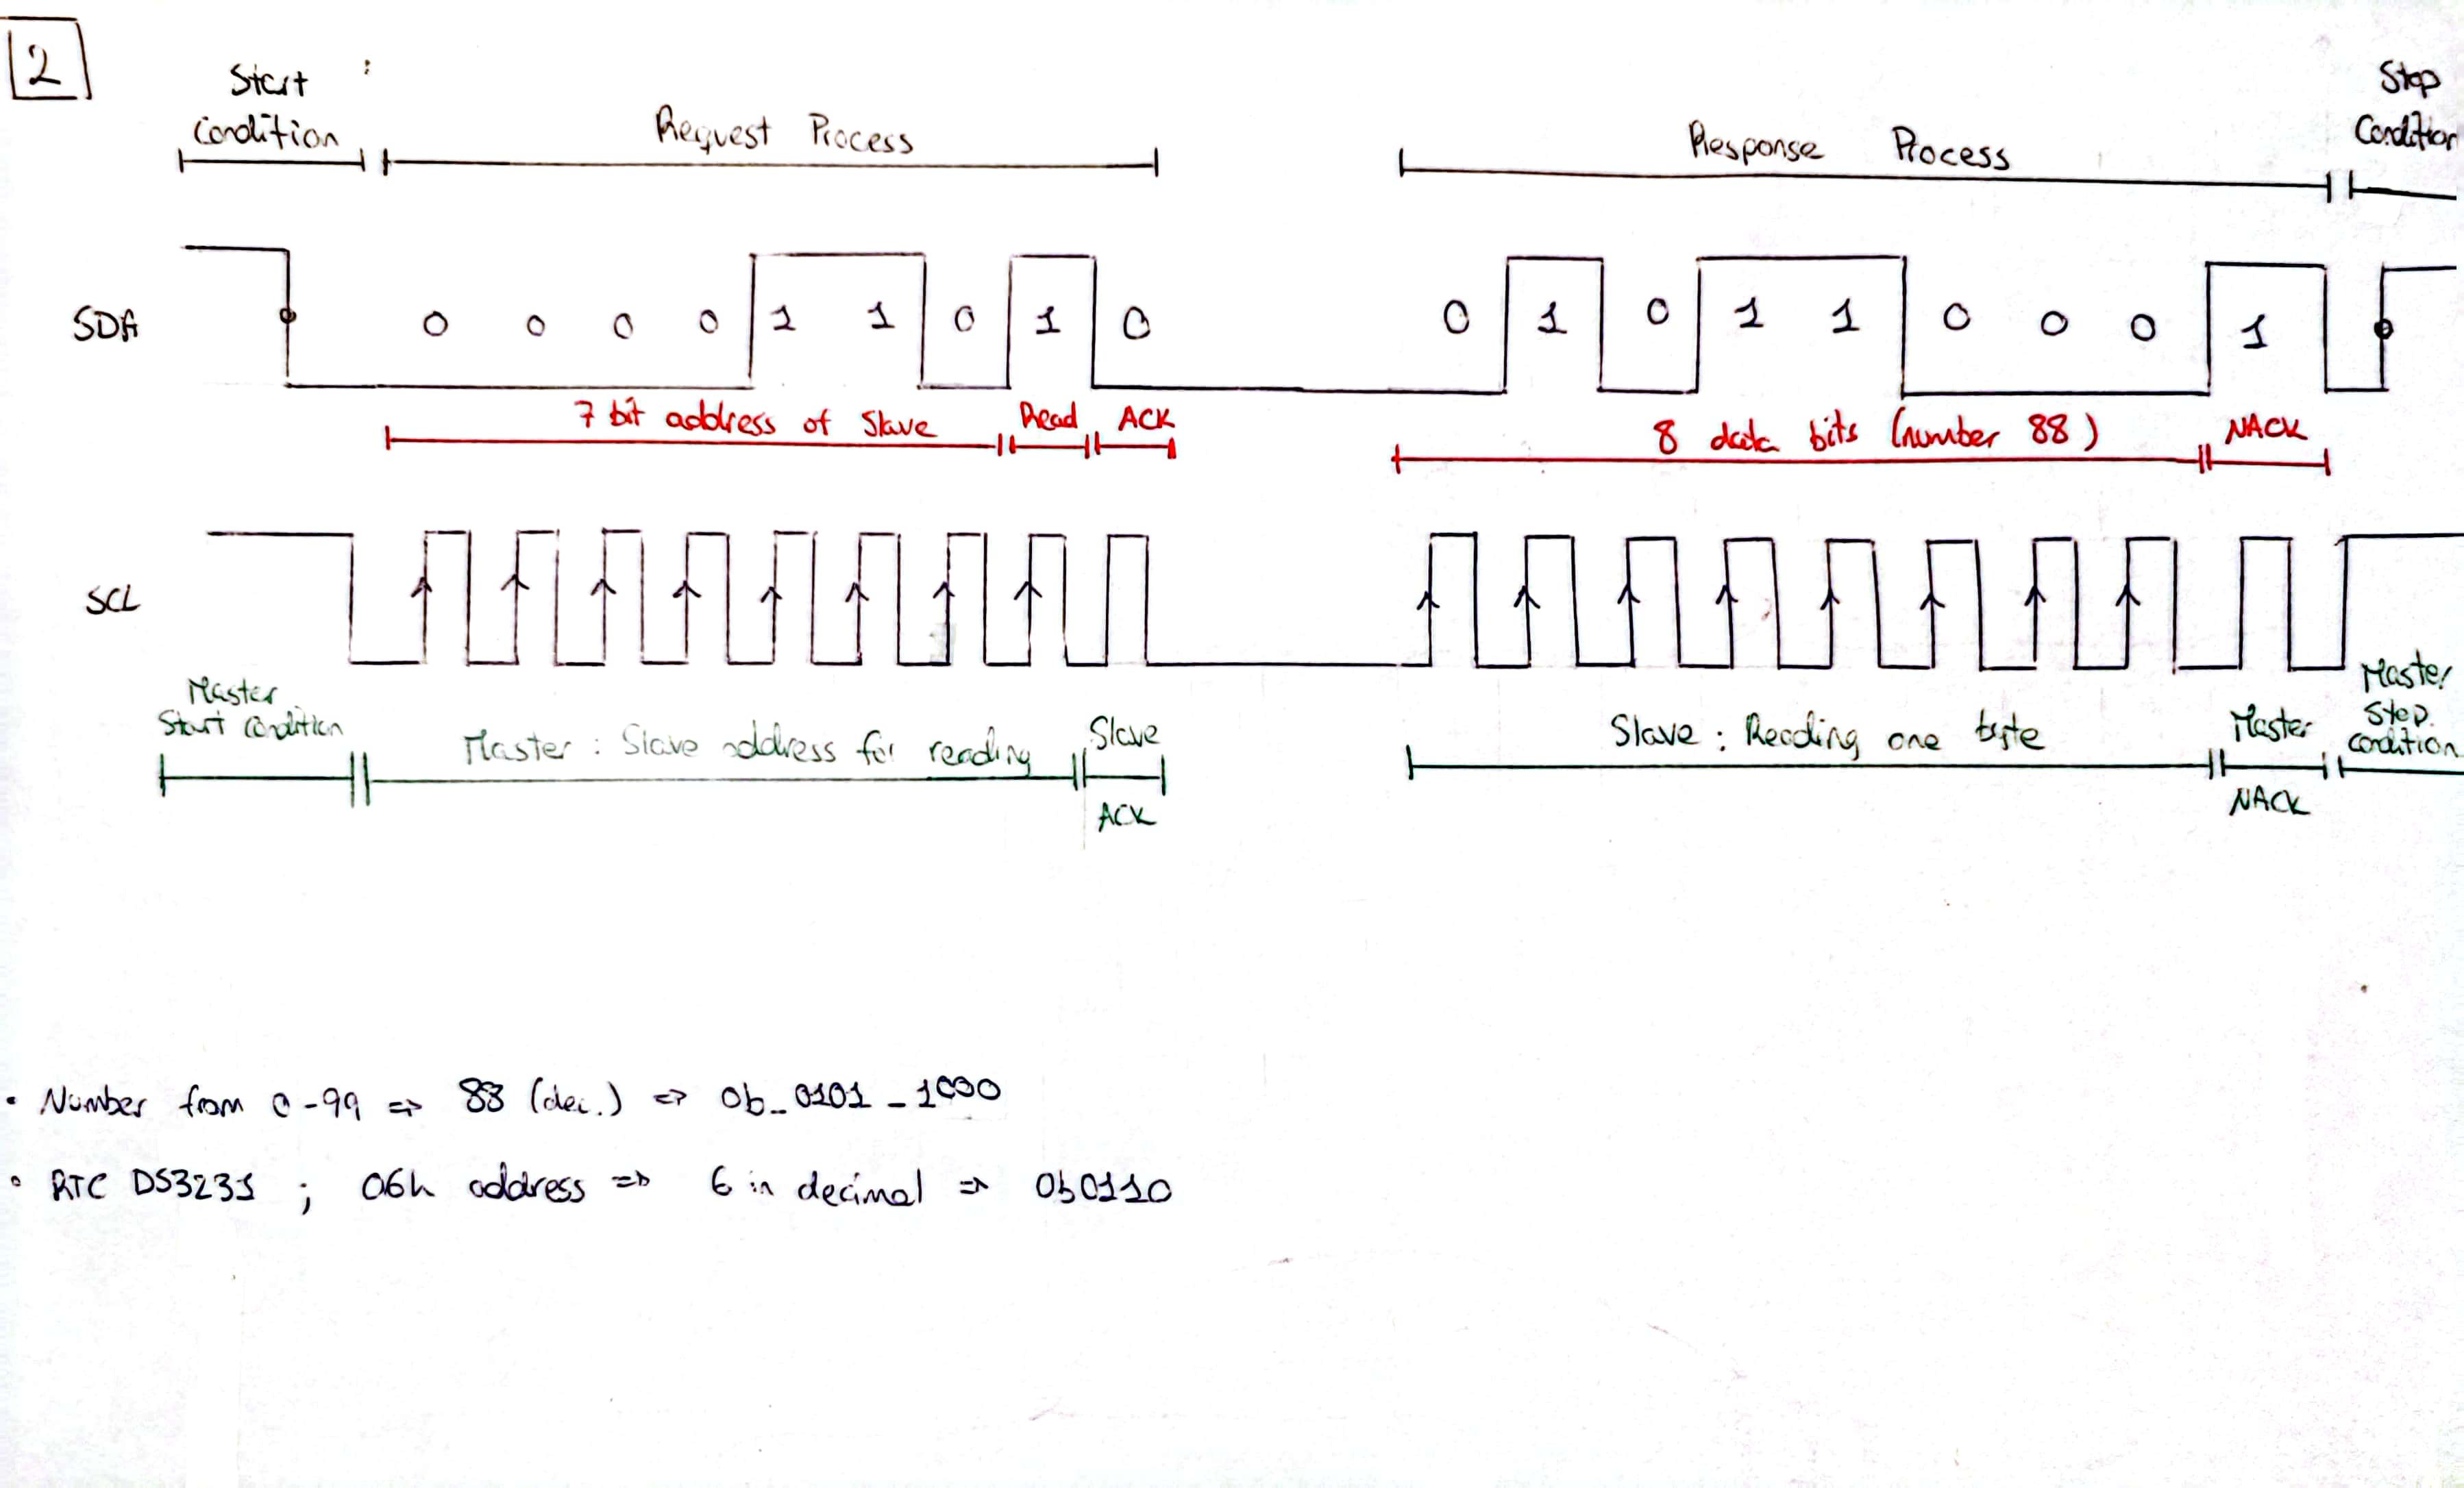 2
Start :
Condition
Request Process
Response Process
Stop
Condition
SDA
0 0 0 0 1 1 0 1 0
0 1 0 1 1 0 0 0 1
7 bit address of Slave Read ACK
8 data bits (number 88) NACK
SCL
Master
Start Condition
Master : Slave address for reading
Slave
ACK
Slave : Reading one byte
Master
NACK
Master
Stop.
condition
• Number from 0-99 => 88 (dec.) => 0b_0101_1000
• RTC DS3231 ; 06h address => 6 in decimal => 0b0110